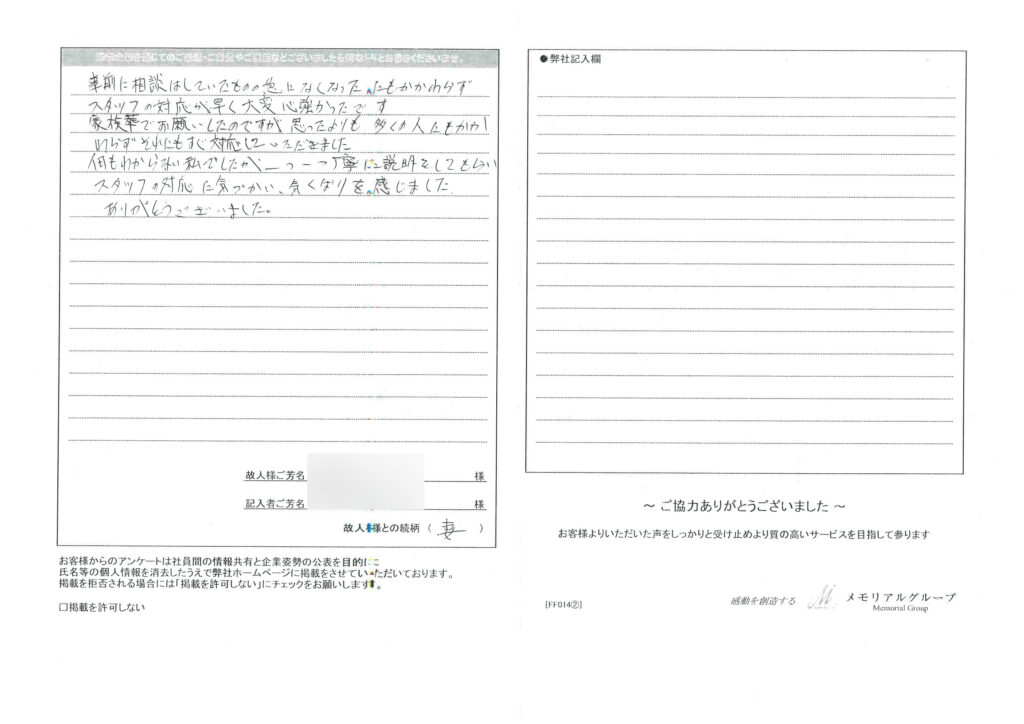 事前に相談はしていたものの急になくなったにもかかわらず
スタッフの対応が早く大変心強かったです
家族葬でお願いしたのですが思ったよりも多くの人たもかか
わらずそれにもすぐ対応していただきました
何もわからない私でしたが、一つ一つ丁寧に説明をしてもらい
スタッフの対応に気づかい、気くばりを感じました。
ありがとうございました。
故人様ご芳名 様
記入者ご芳名 様
故人様との続柄（ 妻 ）
お客様からのアンケートは社員間の情報共有と企業姿勢の公表を目的に
氏名等の個人情報を消去したうえで弊社ホームページに掲載をさせていただいております。
掲載を拒否される場合には「掲載を許可しない」にチェックをお願いします。
□掲載を許可しない
●弊社記入欄
～ ご協力ありがとうございました ～
お客様よりいただいた声をしっかりと受け止めより質の高いサービスを目指して参ります
[FF014②]
感動を創造する
メモリアルグループ
Memorial Group